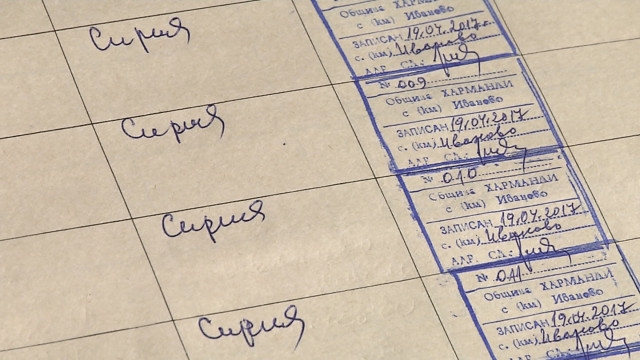 Община ХАРМАНЛИ
с (км) Иваново
ЗАПИСАН 19.04.2017г.
с. (км) Иваново
Сирия
№ 009
Община ХАРМАНЛИ
с (км) Иваново
ЗАПИСАН 19.04.2017
с. (км) Иваново
Сирия
№ 010
Община ХАРМАНЛИ
с (км) Иваново
ЗАПИСАН 19.04.2017
с. (км) Иваново
Сирия
№ 011
Община ХАРМАНЛИ
с (км) Иваново
ЗАПИСАН 19.04.2017
с. (км) Иваново
Сирия